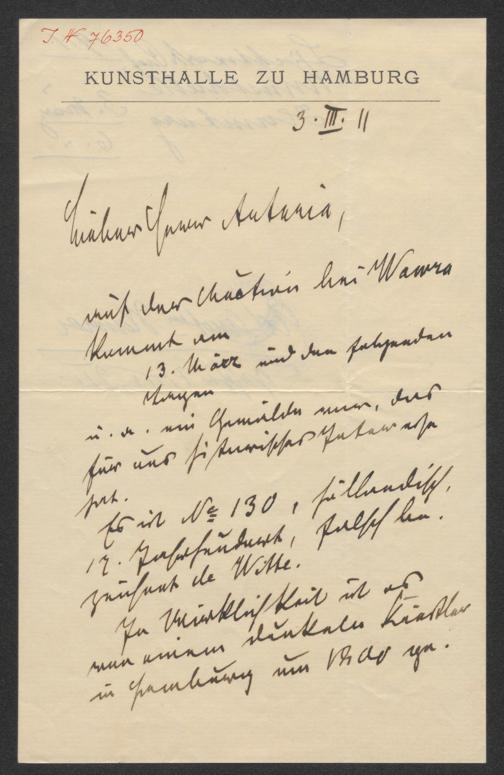 I N 76350
KUNSTHALLE ZU HAMBURG
3. III. 11
Lieber Herr Artaria,
auf der Auction bei Wawra
kommt am
13. März und den folgenden
Tagen
u. a. ein Gemälde vor, das
für uns historisches Interesse
hat.
Es ist No 130, holländisch,
17. Jahrhundert, falsch be-
zeichnet de Witte.
In Wirklichkeit ist es
von einem dunkeln Künstler
in Hamburg um 1800 ge-